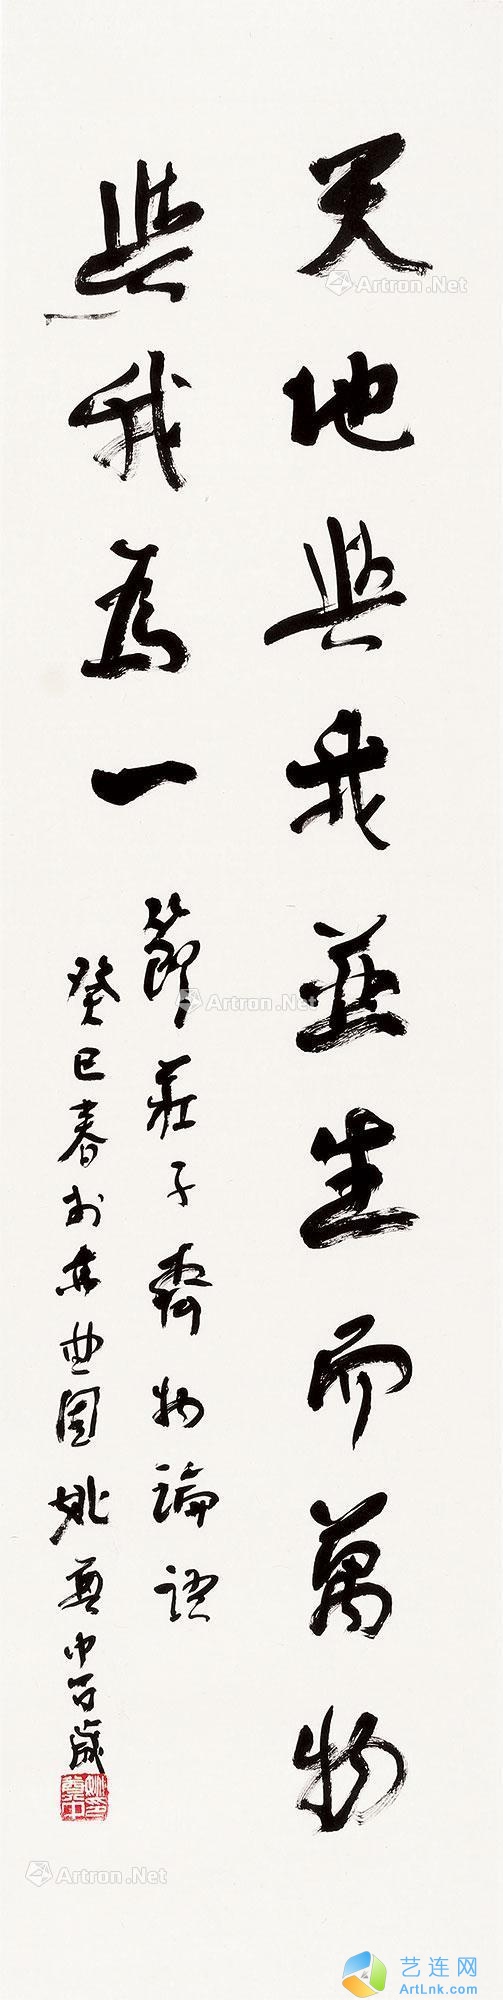 天地與我並生而萬物
與我為一
節莊子齊物論語
癸巳春於東曲園姚奠中百歲
姚奠中印
Artron.Net
Artron.Net
Artron.Net
Artron.Net
艺连网
ArtLnk.com